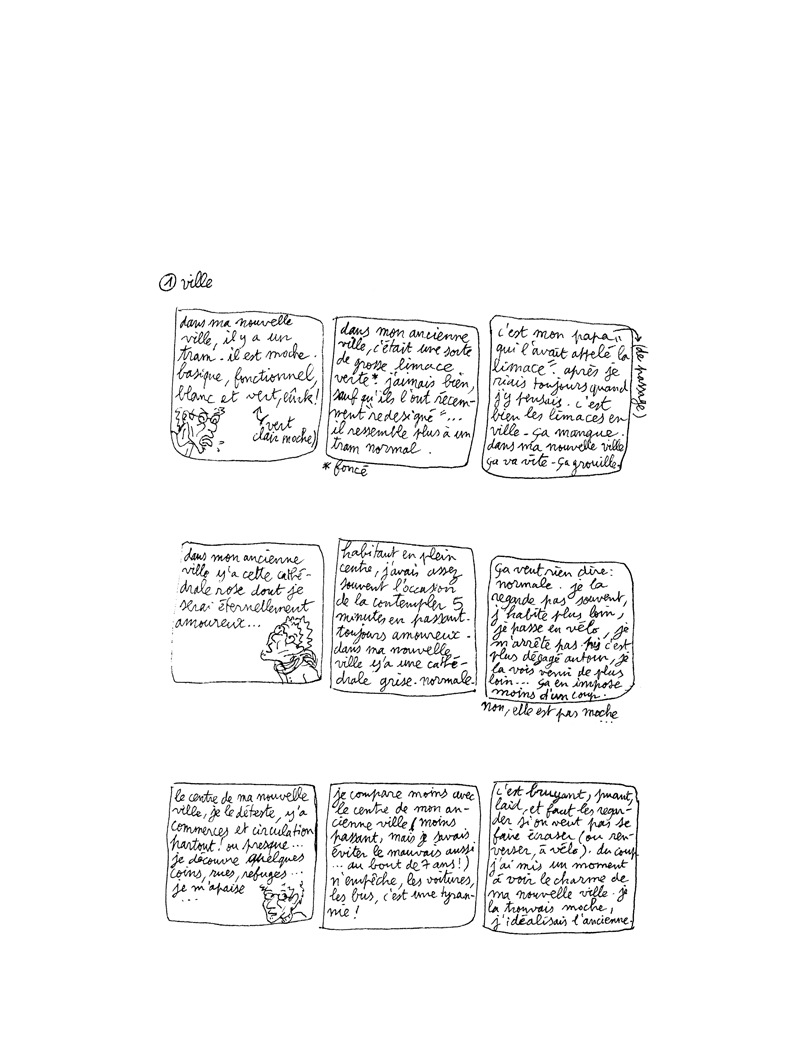 ① ville
dans ma nouvelle
ville, il y a un
tram. il est moche.
basique, fonctionnel,
blanc et vert, eûrk!
(vert
clair moche)
dans mon ancienne
ville, c'était une sorte
de grosse limace
verte*. j'aimais bien,
sauf qu'ils l'ont récem-
ment "redesigné"...
il ressemble plus à un
tram normal.
* foncé
c'est mon papa
qui l'avait appelé "la
limace". après je
riais toujours quand
j'y pensais. c'est
bien les limaces en
ville. ça manque.
dans ma nouvelle ville
ça va vite. ça grouille.
(de passage)
dans mon ancienne
ville y'a cette cathé-
drale rose dont je
serai éternellement
amoureux...
habitant en plein
centre, j'avais assez
souvent l'occasion
de la contempler 5
minutes en passant.
toujours amoureux.
dans ma nouvelle
ville y'a une cathé-
drale grise. normale.
ça veut rien dire:
normale. je la
regarde pas souvent,
j'habite plus loin,
je passe en vélo, je
m'arrête pas. puis c'est
plus dégagé autour, je
la vois venir de plus
loin... ça en impose
moins d'un coup.
non, elle est pas moche...
le centre de ma nouvelle
ville, je le déteste, y'a
commerces et circulation
partout! ou presque...
je découvre quelques
coins, rues, refuges...
je m'apaise
...
je compare moins avec
le centre de mon an-
cienne ville (moins
passant, mais je savais
éviter le mauvais aussi
... au bout de 7 ans!)
n'empêche, les voitures,
les bus, c'est une tyran-
nie!
c'est bruyant, puant,
laid, et faut les regar-
der si on veut pas se
faire écraser (ou ren-
verser, à vélo). du coup
j'ai mis un moment
à voir le charme de
ma nouvelle ville. je
la trouvais moche,
j'idéalisais l'ancienne.